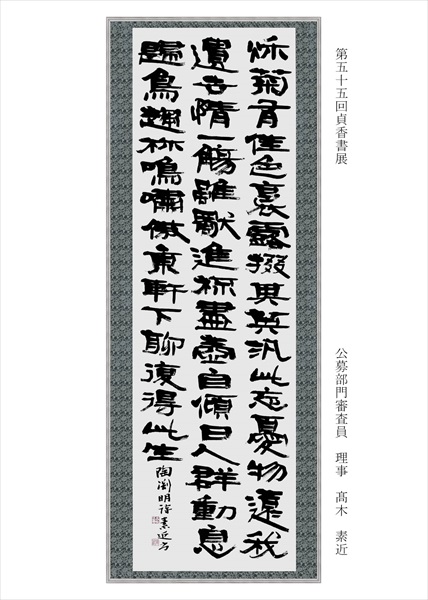 第五十五回貞香書展
公募部門審査員　理事　髙木　素近
秌菊有佳色裛露掇其英汎此忘憂物遠我
遺世情一觴雖獻進杯盡壺自傾日入群動息
歸鳥趨林鳴嘯傲東軒下聊復得此生
陶淵明詩 素近